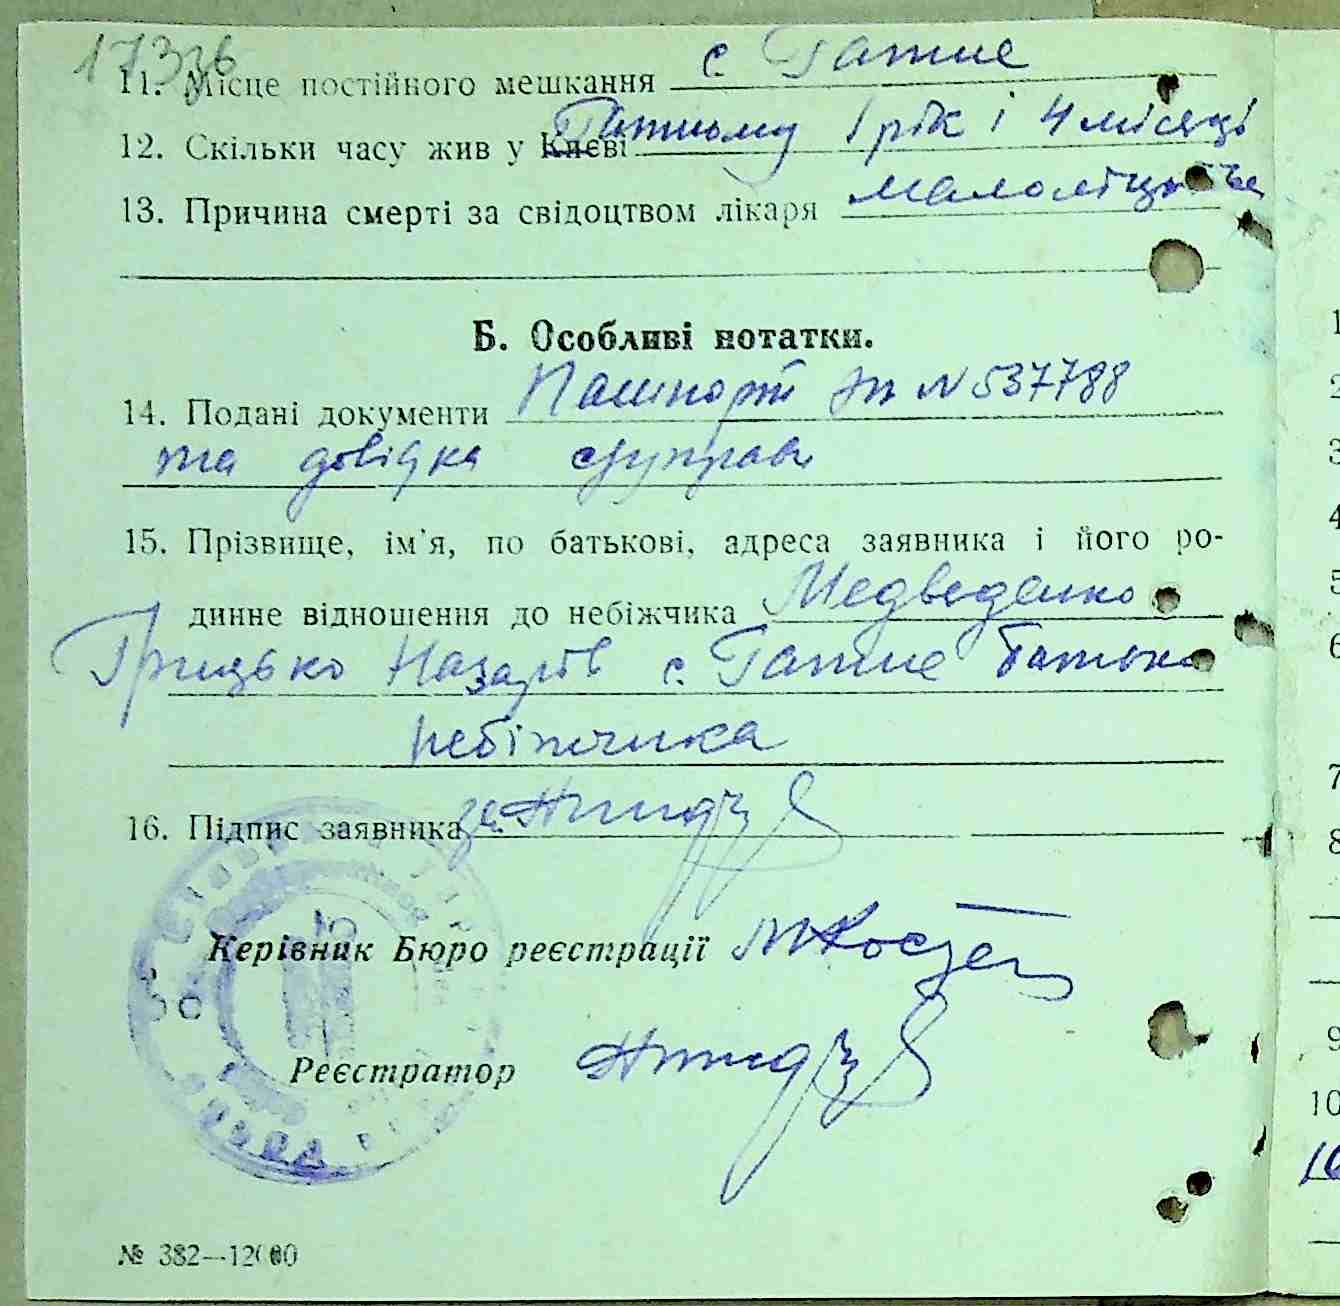 11. Місце постійного мешкання с. Гатне
12. Скільки часу жив у Києві Гатньому 1 рік і 4 місяці
13. Причина смерті за свідоцтвом лікаря
Б. Особливі нотатки.
14. Подані документи Пашпорт № 537788
та довідка сільуправи
15. Прізвище, ім'я, по батькові, адреса заявника і його ро-
динне відношення до небіжчика Медведенко
Грицько Назарів с. Гатне батько
небіжчика
16. Підпис заявника за
Керівник Бюро реєстрації
Реєстратор
№ 382—12000